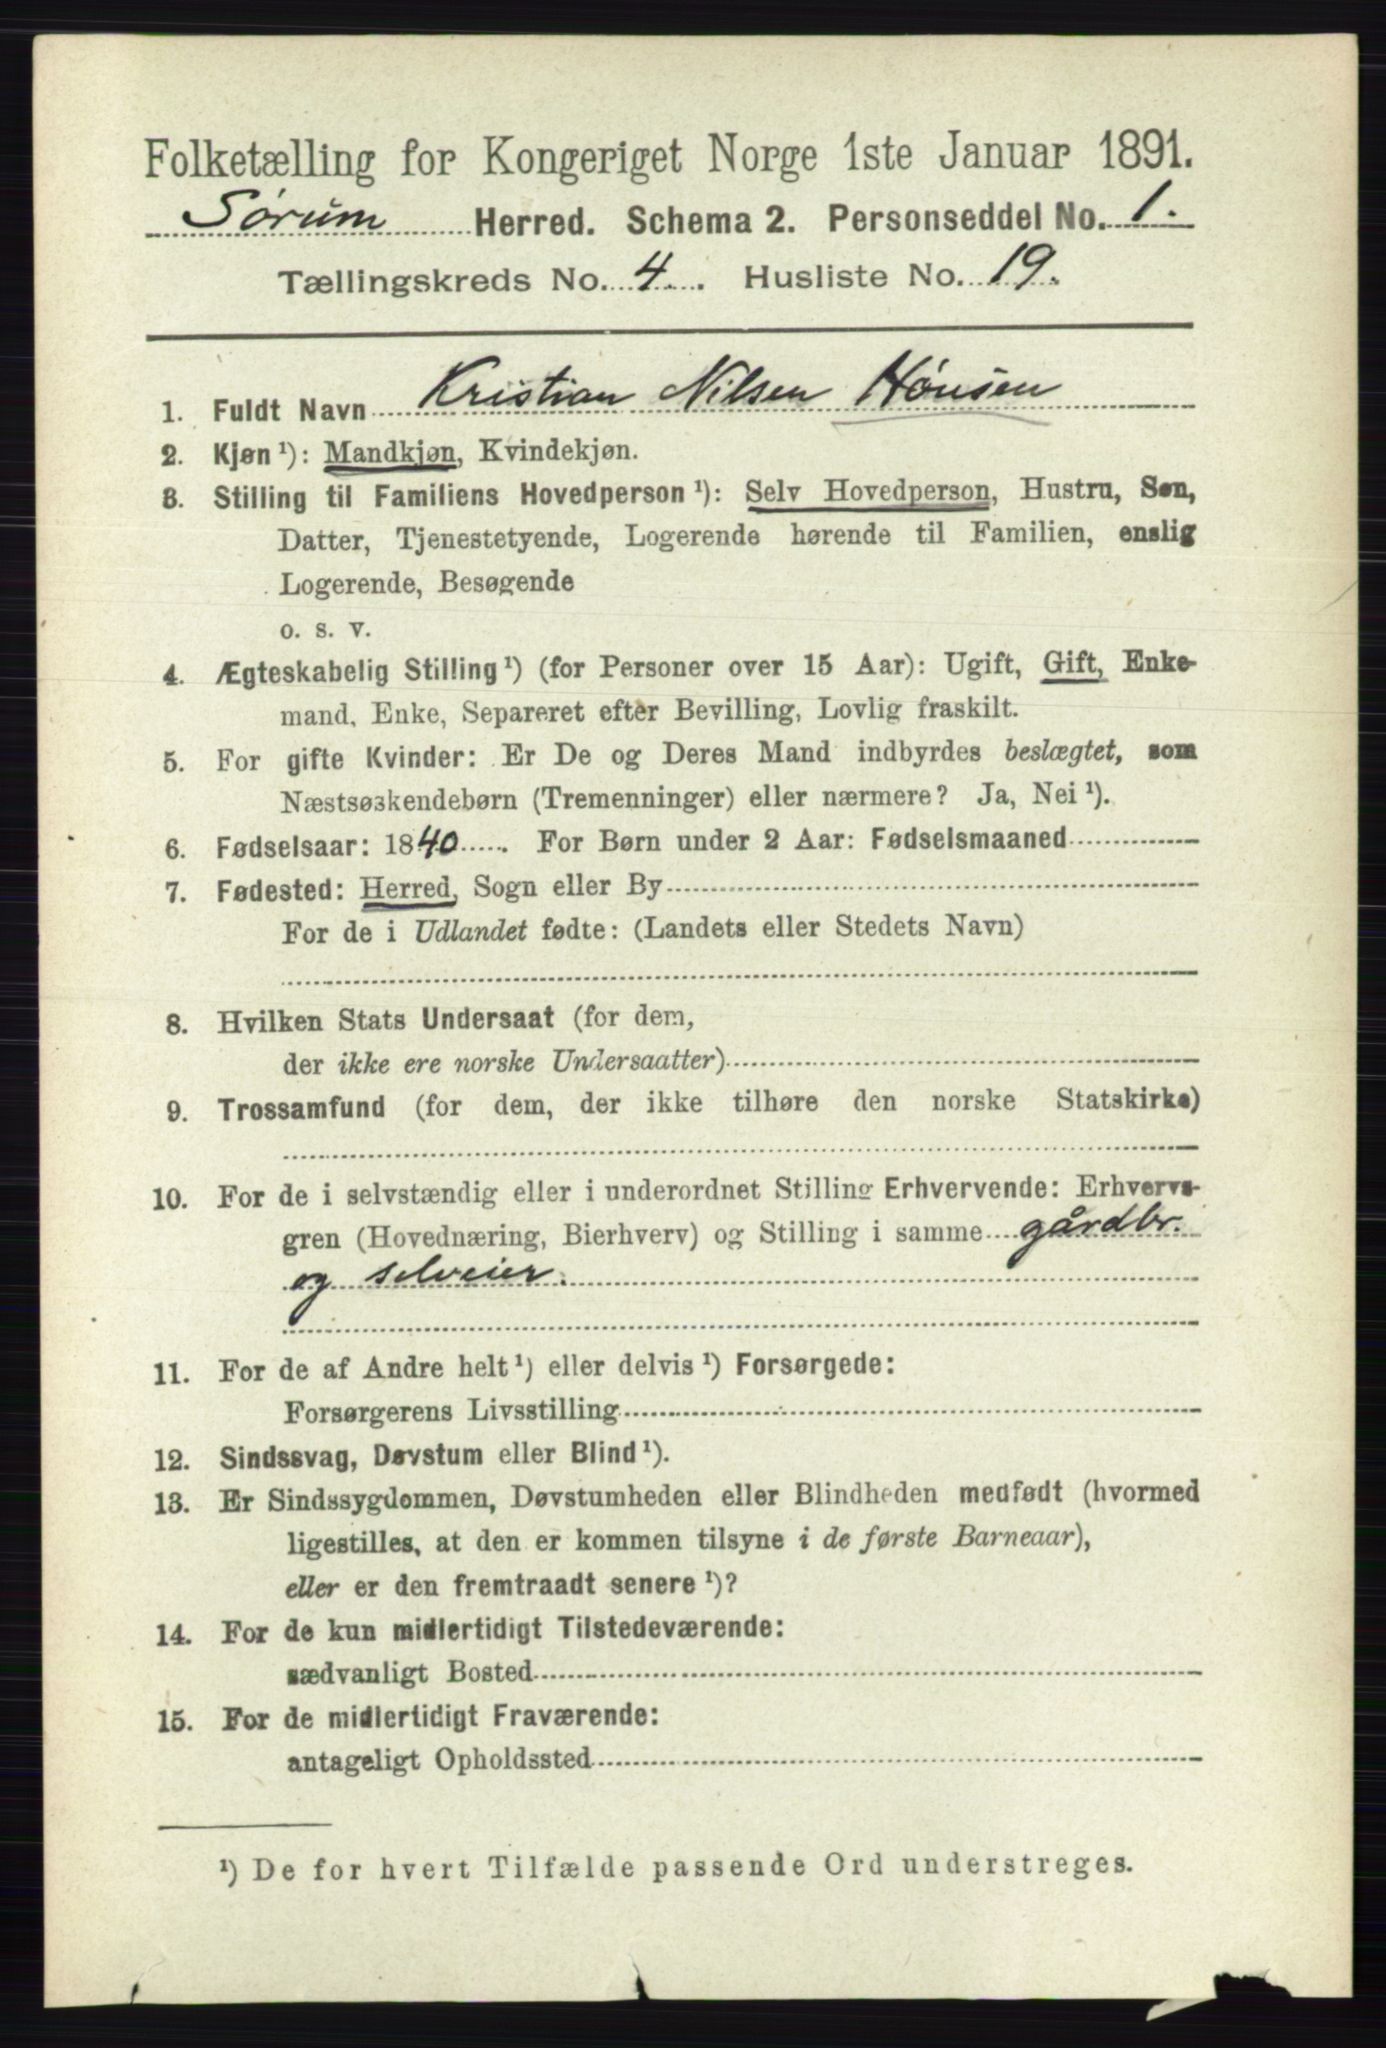 Folketælling for Kongeriget Norge 1ste Januar 1891.
Sørum Herred. Schema 2. Personseddel No. 1.
Tællingskreds No. 4. Husliste No. 19.
1. Fuldt Navn Kristian Nilsen Hønsen
2. Kjøn ¹): Mandkjøn, Kvindekjøn.
3. Stilling til Familiens Hovedperson ¹): Selv Hovedperson, Hustru, Søn,
Datter, Tjenestetyende, Logerende hørende til Familien, enslig
Logerende, Besøgende
o. s. v.
4. Ægteskabelig Stilling ¹) (for Personer over 15 Aar): Ugift, Gift, Enke-
mand, Enke, Separeret efter Bevilling, Lovlig fraskilt.
5. For gifte Kvinder: Er De og Deres Mand indbyrdes beslægtet, som
Næstsøskendebørn (Tremenninger) eller nærmere? Ja, Nei ¹).
6. Fødselsaar: 1840. For Børn under 2 Aar: Fødselsmaaned
7. Fødested: Herred, Sogn eller By
For de i Udlandet fødte: (Landets eller Stedets Navn)
8. Hvilken Stats Undersaat (for dem,
der ikke ere norske Undersaatter)
9. Trossamfund (for dem, der ikke tilhøre den norske Statskirke)
10. For de i selvstændig eller i underordnet Stilling Erhvervende: Erhvervs-
gren (Hovednæring, Bierhverv) og Stilling i samme gårdbr.
og selveier.
11. For de af Andre helt ¹) eller delvis ¹) Forsørgede:
Forsørgerens Livsstilling
12. Sindssvag, Døvstum eller Blind ¹).
13. Er Sindssygdommen, Døvstumheden eller Blindheden medfødt (hvormed
ligestilles, at den er kommen tilsyne i de første Barneaar),
eller er den fremtraadt senere ¹)?
14. For de kun midlertidigt Tilstedeværende:
sædvanligt Bosted
15. For de midlertidigt Fraværende:
antageligt Opholdssted
¹) De for hvert Tilfælde passende Ord understreges.